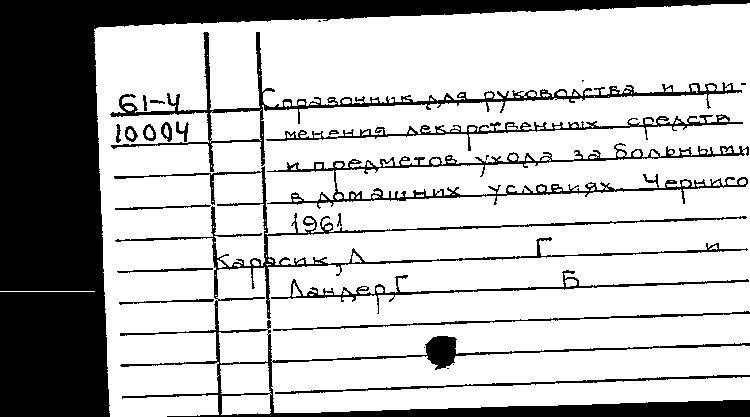 61-4 Справочник для руководства и при-
10094 менения лекарственных средств
и предметов ухода за больными
в домашних условиях. Черниго
1961
Карасик, Л Г и
Ландер, Г Б